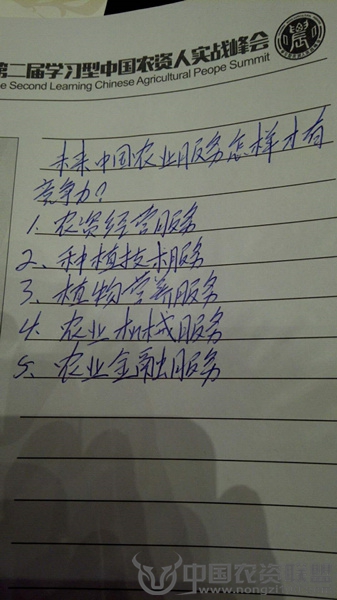 第二届学习型中国农资人实战峰会
e Second Learning Chinese Agricultural Peope Summit
未来中国农业服务怎样才有
竞争力?
1. 农资经营服务
2、种植技术服务
3、植物营养服务
4、农业机械服务
5、农业金融服务
中国农资联盟
www.nongzi